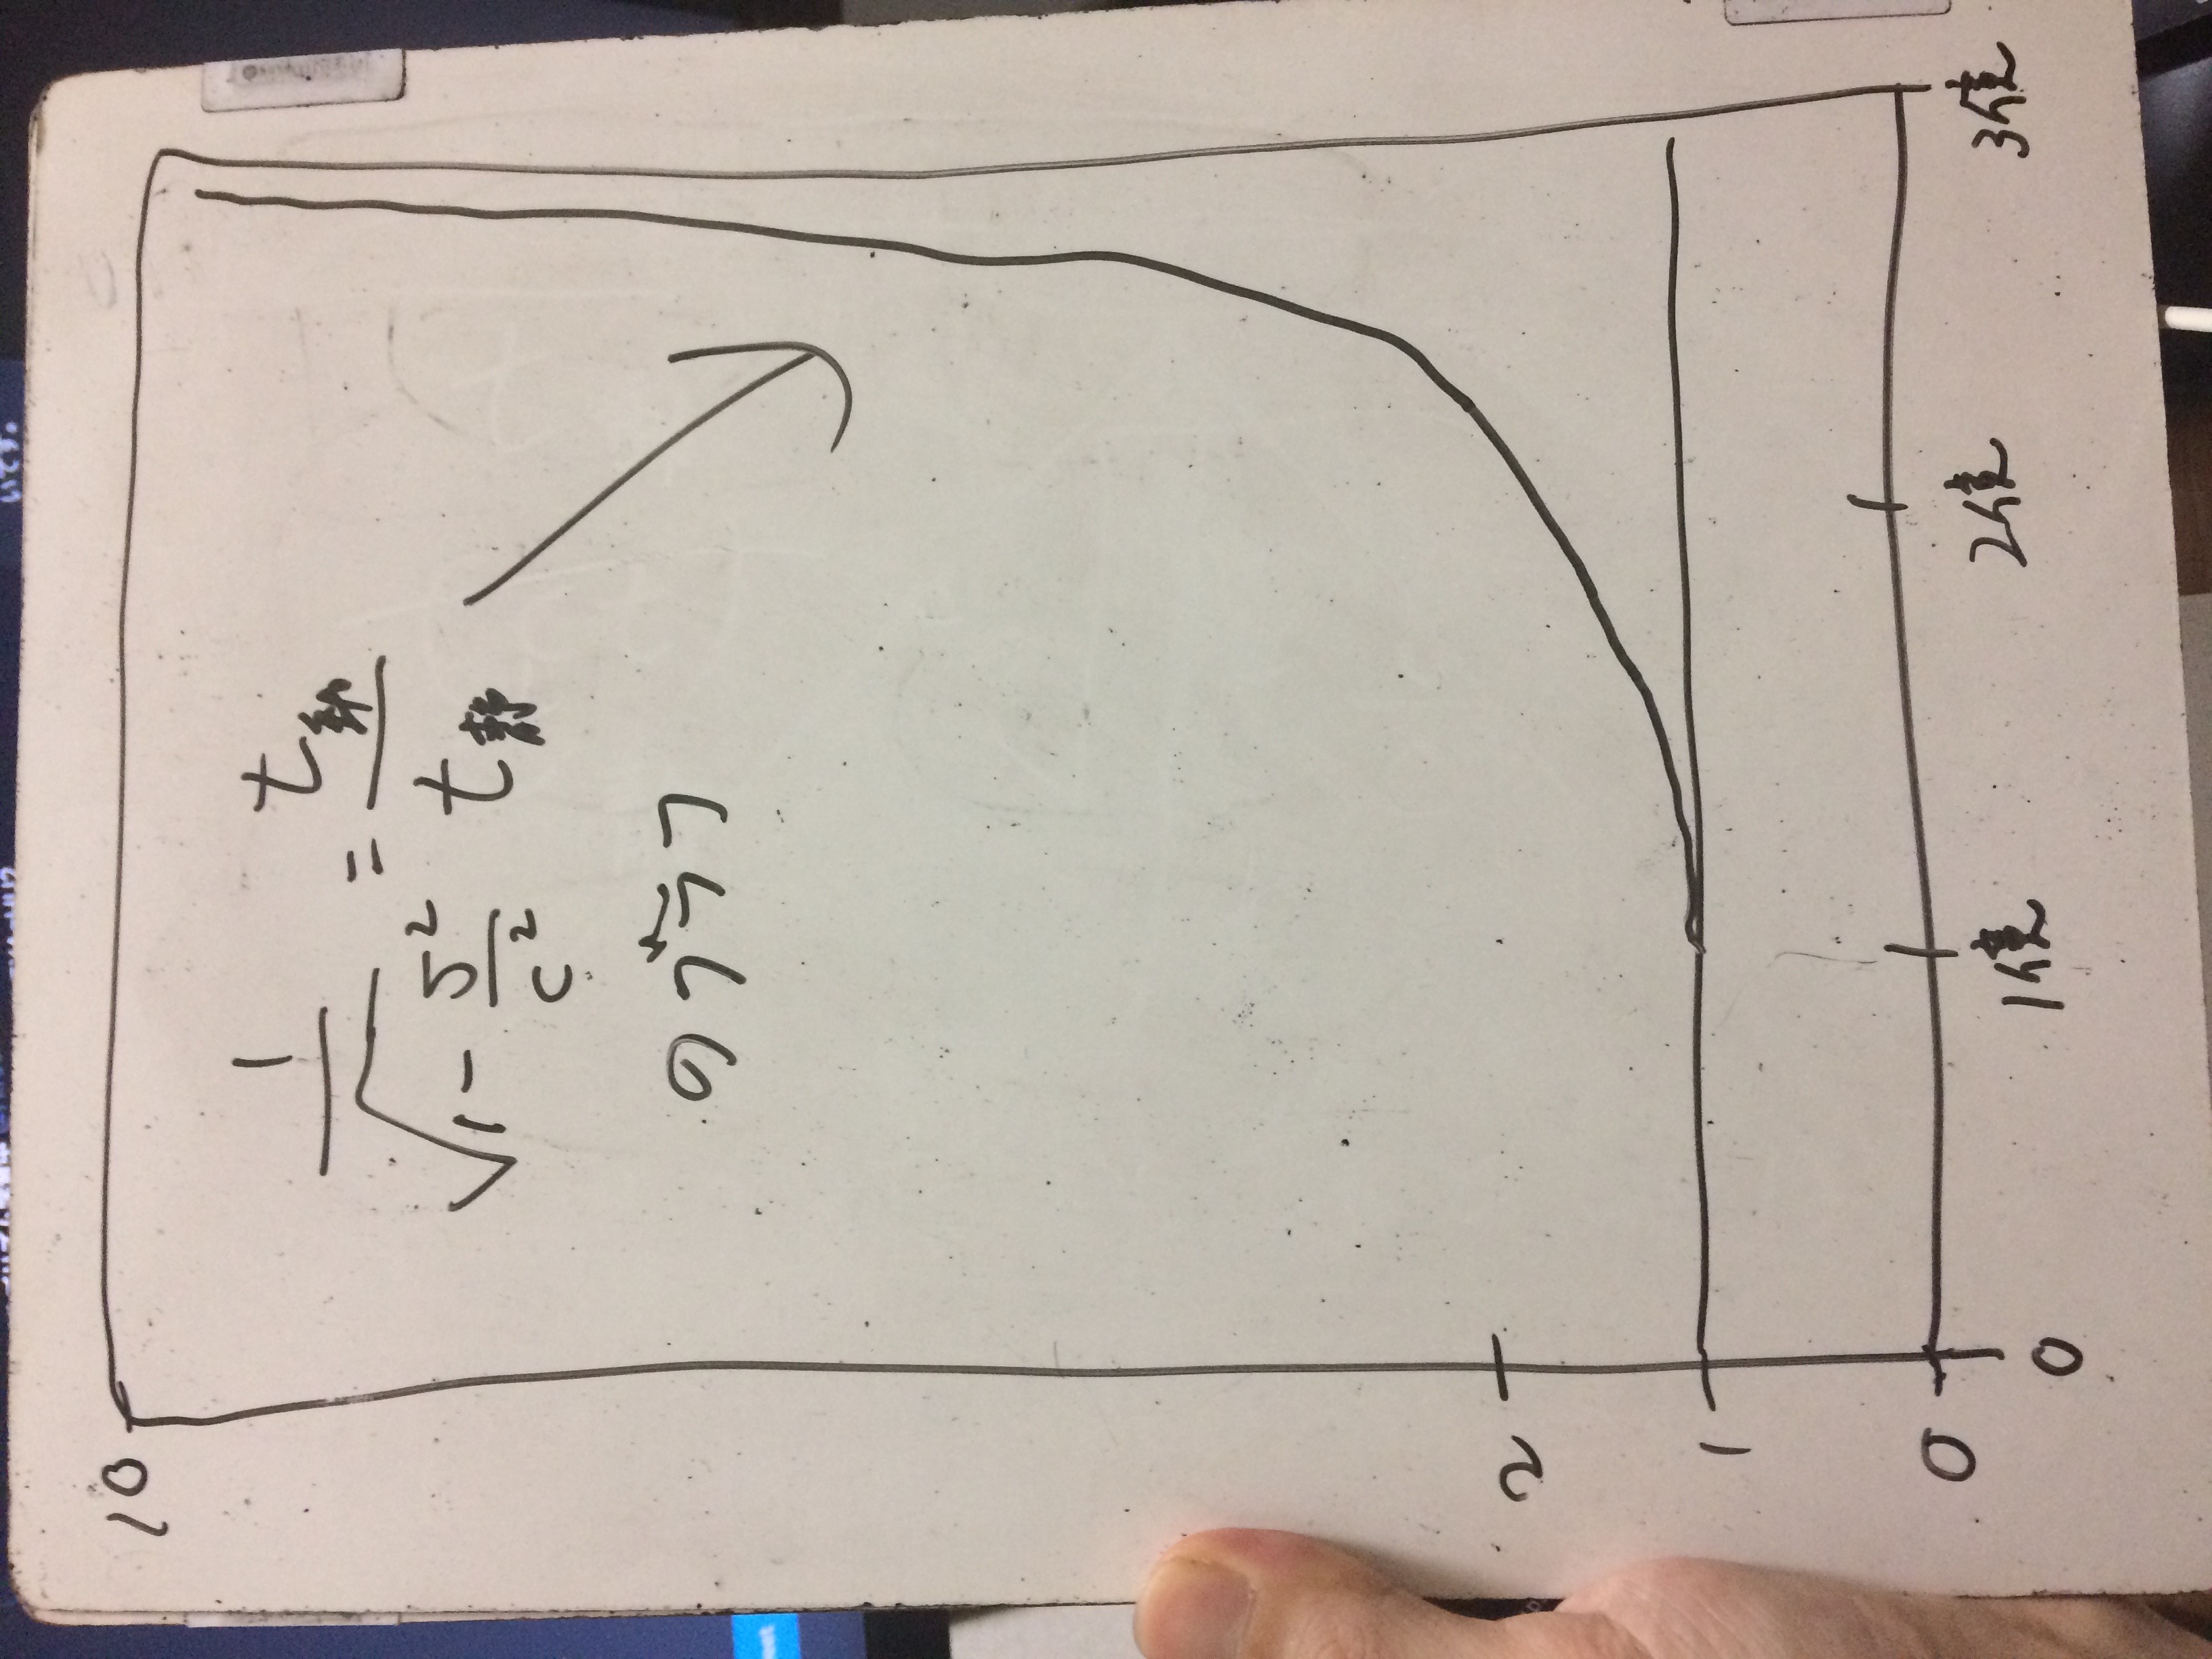 10
1
√1-υ²/c² = t動/t静
のグラフ
2
1
0
0 1億 2億 3億